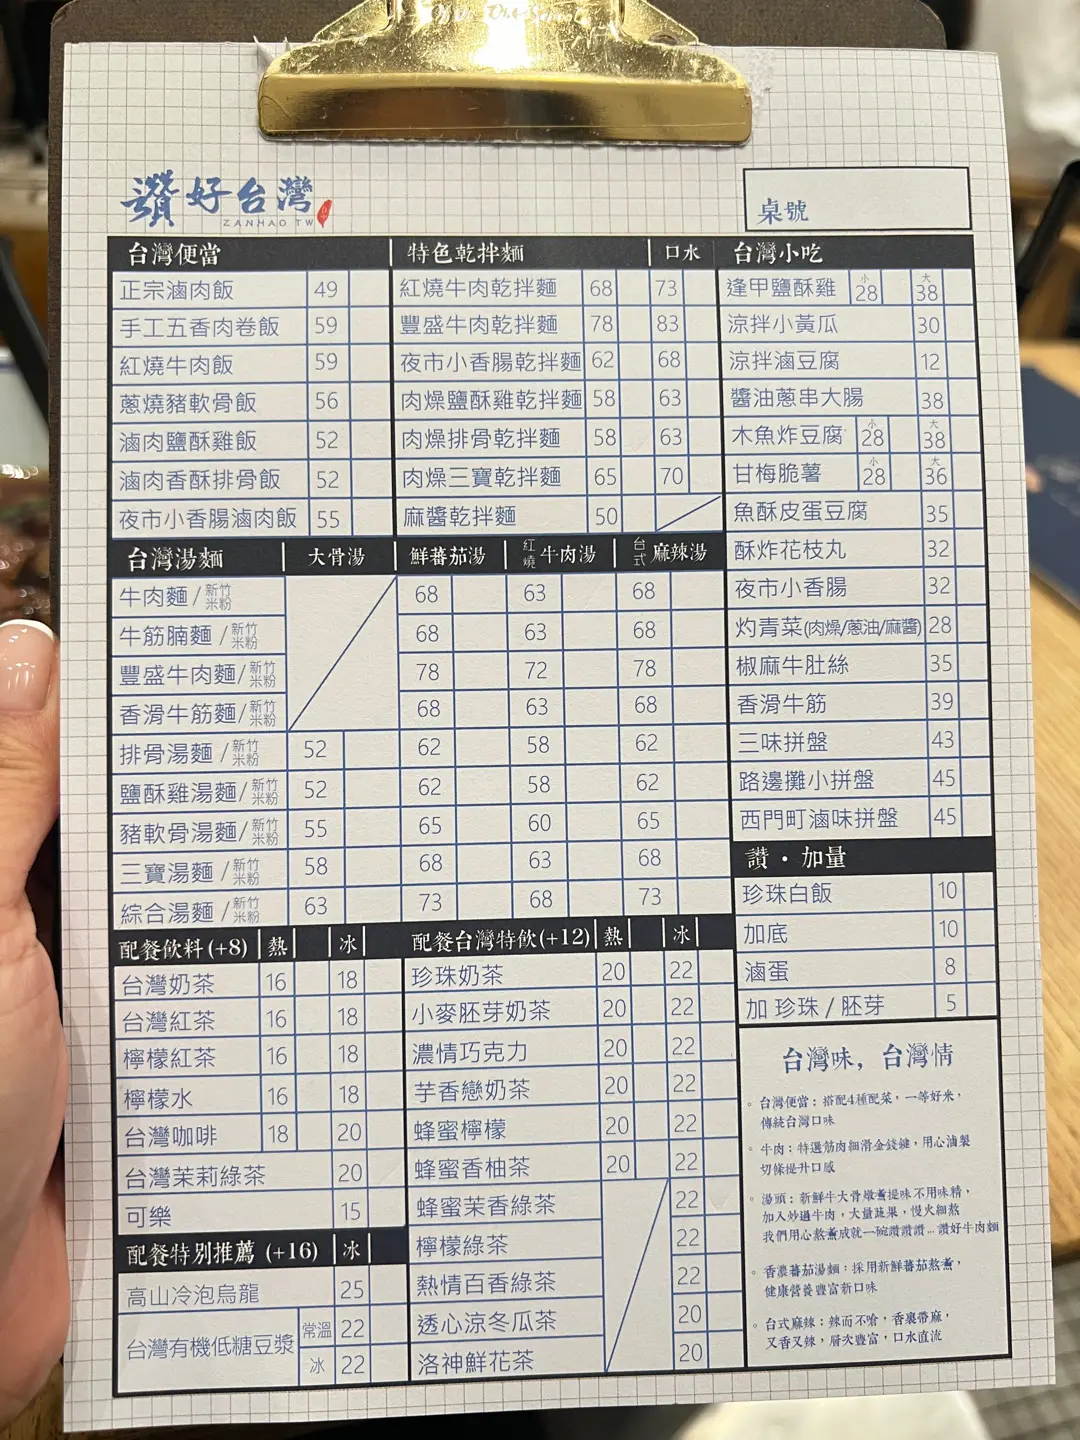 讚好台灣
ZANHAO TW
桌號
台灣便當
正宗滷肉飯 49
手工五香肉卷飯 59
紅燒牛肉飯 59
蔥燒豬軟骨飯 56
滷肉鹽酥雞飯 52
滷肉香酥排骨飯 52
夜市小香腸滷肉飯 55
特色乾拌麵 口水
紅燒牛肉乾拌麵 68 73
豐盛牛肉乾拌麵 78 83
夜市小香腸乾拌麵 62 68
肉燥鹽酥雞乾拌麵 58 63
肉燥排骨乾拌麵 58 63
肉燥三寶乾拌麵 65 70
麻醬乾拌麵 50
台灣小吃
逢甲鹽酥雞 小28 大38
涼拌小黃瓜 30
涼拌滷豆腐 12
醬油蔥串大腸 38
木魚炸豆腐 小28 大38
甘梅脆薯 小28 大36
魚酥皮蛋豆腐 35
酥炸花枝丸 32
夜市小香腸 32
灼青菜(肉燥/蔥油/麻醬) 28
椒麻牛肚絲 35
香滑牛筋 39
三味拼盤 43
路邊攤小拼盤 45
西門町滷味拼盤 45
台灣湯麵 大骨湯 鮮蕃茄湯 紅燒牛肉湯 台式麻辣湯
牛肉麵/新竹米粉 68 63 68
牛筋腩麵/新竹米粉 68 63 68
豐盛牛肉麵/新竹米粉 78 72 78
香滑牛筋麵/新竹米粉 68 63 68
排骨湯麵/新竹米粉 52 62 58 62
鹽酥雞湯麵/新竹米粉 52 62 58 62
豬軟骨湯麵/新竹米粉 55 65 60 65
三寶湯麵/新竹米粉 58 68 63 68
綜合湯麵/新竹米粉 63 73 68 73
讚・加量
珍珠白飯 10
加底 10
滷蛋 8
加 珍珠 / 胚芽 5
配餐飲料(+8) 熱 冰
台灣奶茶 16 18
台灣紅茶 16 18
檸檬紅茶 16 18
檸檬水 16 18
台灣咖啡 18 20
台灣茉莉綠茶 20
可樂 15
配餐特別推薦 (+16) 冰
高山冷泡烏龍 25
台灣有機低糖豆漿 常溫 22
冰 22
配餐台灣特飲(+12) 熱 冰
珍珠奶茶 20 22
小麥胚芽奶茶 20 22
濃情巧克力 20 22
芋香戀奶茶 20 22
蜂蜜檸檬 20 22
蜂蜜香柚茶 20 22
蜂蜜茉香綠茶 22
檸檬綠茶 22
熱情百香綠茶 22
透心涼冬瓜茶 20
洛神鮮花茶 20
台灣味，台灣情
。台灣便當：搭配4種配菜，一等好米，
傳統台灣口味
。牛肉：特選筋肉細滑金錢𦟌，用心滷製
切條提升口感
。湯頭：新鮮牛大骨燉薰提味不用味精，
加入炒過牛肉，大量蔬果，慢火細熬
我們用心熬薰成就一碗讚讚讚...讚好牛肉麵
。香濃蕃茄湯麵：採用新鮮蕃茄熬薰，
健康營養豐富新口味
。台式麻辣：辣而不嗆，香裹帶麻，
又香又辣，層次豐富，口水直流